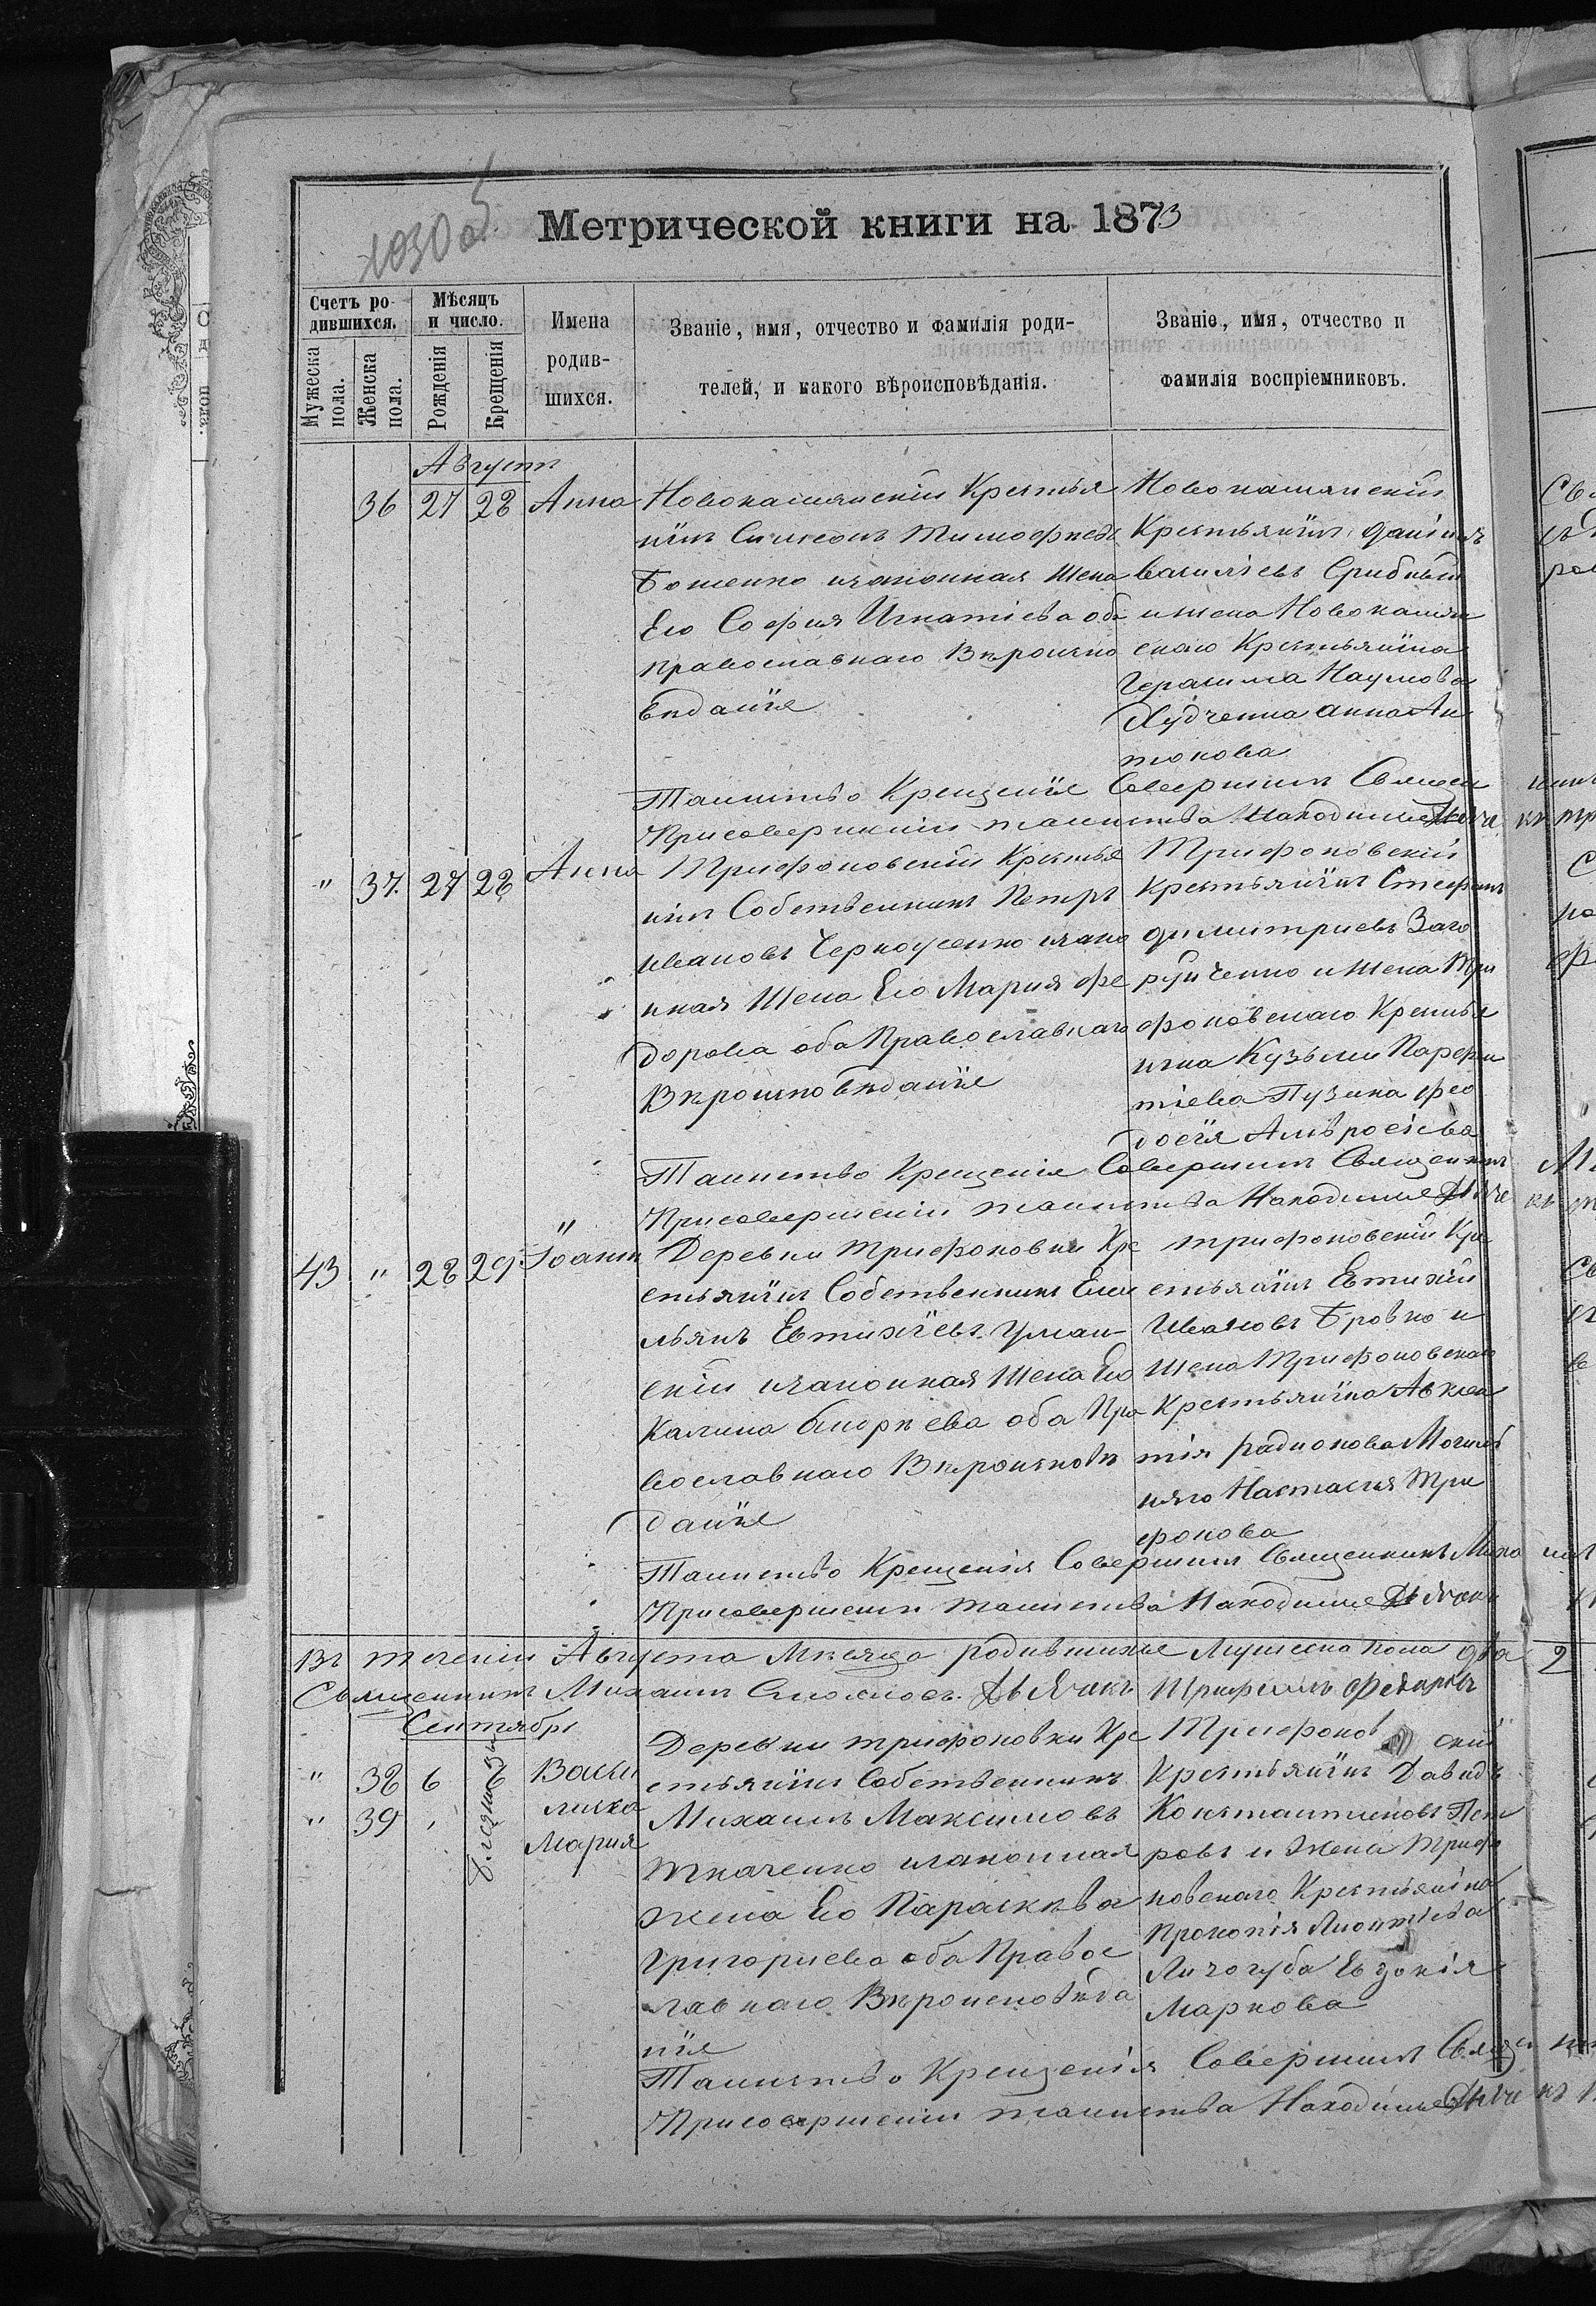 1030 об
Метрической книги на 1873
Счетъ ро-
дившихся.
Мѣсяцъ
и число.
Мужеска
пола.
Женска
пола.
Рожденія
Крещенія
Имена
родив-
шихся.
Званіе, имя, отчество и фамилія роди-
телей, и какого вѣроисповѣданія.
Званіе, имя, отчество и
фамилія воспріемниковъ.
Августъ
36 27 28 Анна
Крестья
нінъ Симеонъ Тимофѣевъ
Боженко изаконная Жена
Его Софія Игнатіева оба
православнаго Вѣроиспо
вѣданія
Крестьянинъ Даніилъ
Василіевъ Срибный
и жена
скаго Крестьянина
Герасима Наумова
Худченка Анна Ан
тонова
Таинство Крещенія Совершилъ Священ
При совершеніи таинства Находился Дьяче
" 37. 27 28 Анна
Трифоновскій Крестья
нинъ Собственникъ Петръ
Ивановъ Черноусенко изако
нная Жена Его Марія Фе
дорова оба Православнаго
Вѣроисповѣданія
Трифоновскій
Крестьянинъ Стефанъ
Димитріевъ Заго
руйченко и жена Три
фоновскаго Крестья
нина Кузьмы Парфен
тіева Пузика Фео
досія Амвросіева
Таинство Крещенія Совершилъ Священникъ
При совершеніи таинства Находился Дьяче
43 " 28 29 Іоаннъ
Деревни Трифоновки Кре
стьянинъ Собственникъ Еме
льянъ Евтихіевъ Уман-
скій изаконная Жена Его
Калина Андрѣева оба Пра
вославнаго Вѣроисповѣ
данія
Трифоновскій Кре
стьянинъ Евтихій
Ивановъ Бровко и
Жена Трифоновскаго
Крестьянина Авксен
тія Радионова
Настасія Три
фонова
Таинство Крещенія Совершилъ Священникъ Миха
При совершеніи таинства Находился Дьячекъ
Въ теченіи Августа Мѣсяца родившихся Мужеска пола два
Священникъ Михаилъ Дьячекъ Трифонъ
Сентябрь
" 38 6 6 Васи
лиска
" 39 Мария
близнецы
Деревни Трифоновки Кре
стьянинъ Собственникъ
Михаилъ Максимовъ
Ткаченко изаконная
жена Его Параскѣва
Григориева оба Правос
лавнаго Вѣроисповѣда
нія
Трифонов скій
Крестьянинъ Давидъ
Константиновъ Пет
ровъ и жена Трифо
новскаго Крестьянина
Прокопія Лионтіева
Лизогуба Евдокія
Маркова
Таинство Крещенія Совершилъ Священ
При совершеніи таинства Находился Дьяче